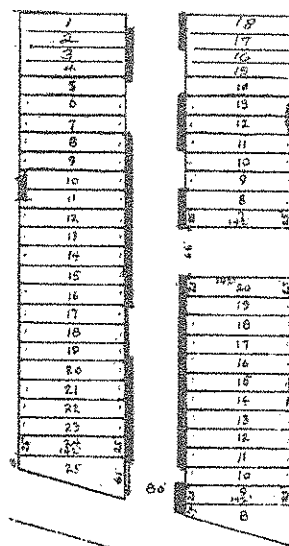 1
2
3
4
5
6
7
8
9
10
11
12
13
14
15
16
17
18
19
20
21
22
23
25
80'
18
17
16
15
14
13
12
11
10
9
8
66'
20
19
18
17
16
15
14
13
12
11
10
9
8